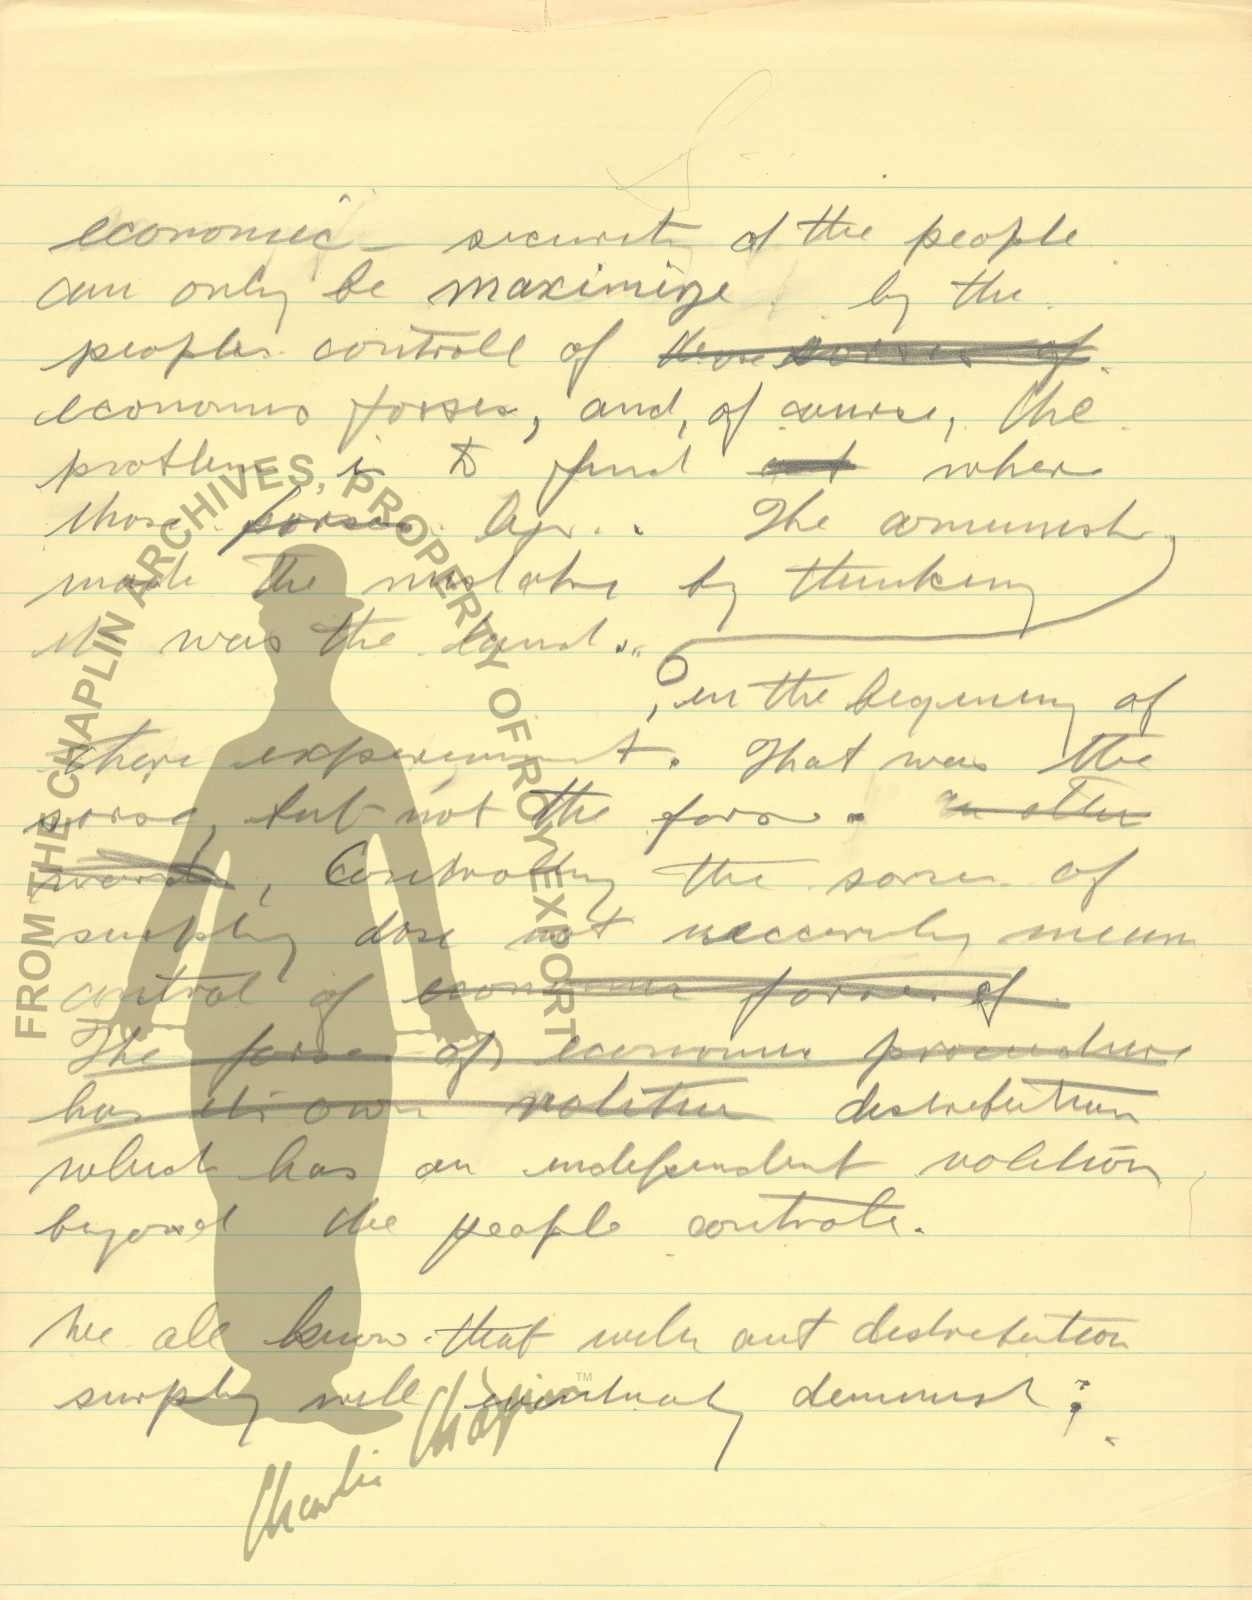 economic security of the people
can only be maximize by the
peoples controll of those sorses of
economic forses, and, of course, the
problem is to find out where
those forses lay.. The comunists
made the mistake by thinking
it was the land..
, in the begining of
there experiment. That was the
sorse, but not the forse. In other
words, Controlling the sorse of
supply dose not neccerely mean
control of economic forses of
The forse of economic procedure
has its own volition distrebution
which has an independent volition
beyond the people controle.
We all know that with out distrebution
surply will eventualy deminish;
FROM THE CHAPLIN ARCHIVES, PROPERTY OF ROY EXPORT
Charlie Chaplin ™